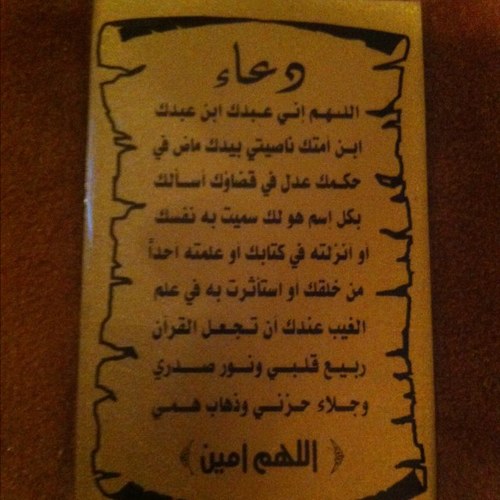 دعاء
اللهم إني عبدك ابن عبدك
ابن أمتك ناصيتي بيدك ماض في
حكمك عدل في قضاؤك أسألك
بكل إسم هو لك سميت به نفسك
أو أنزلته في كتابك او علمته احداً
من خلقك أو استأثرت به في علم
الغيب عندك أن تجعل القرآن
ربيع قلبي ونور صدري
وجلاء حزني وذهاب همي
(اللهم امين)